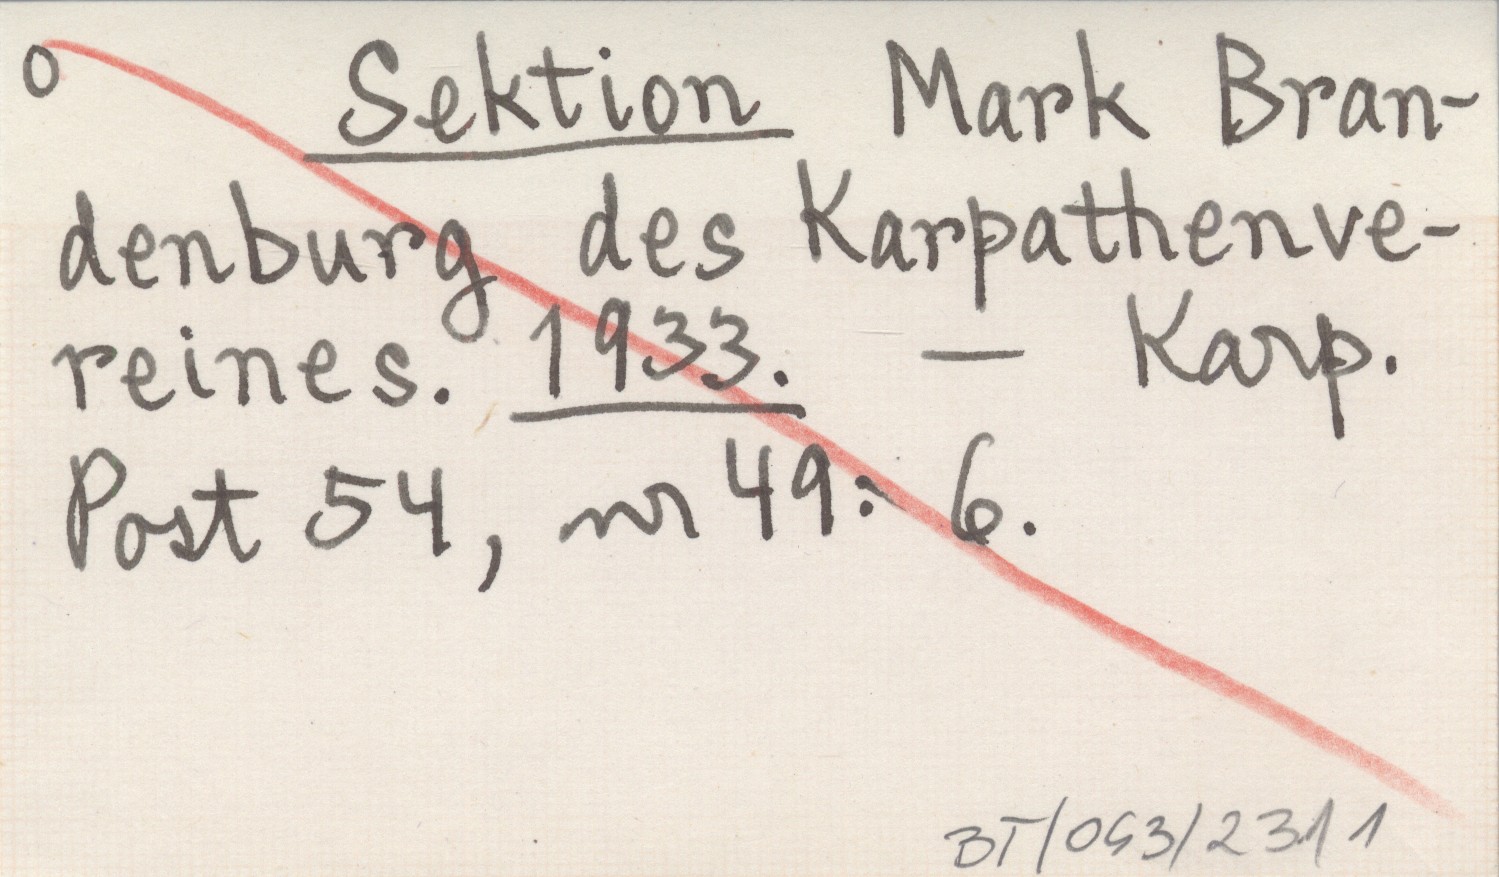 o Sektion Mark Bran-
denburg des Karpathenve-
reines. 1933. — Karp.
Post 54, nr 49: 6.
BT/053/2311